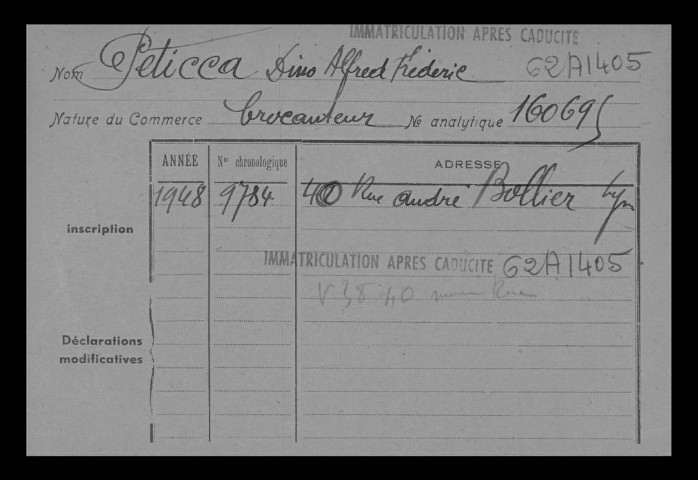 IMMATRICULATION APRES CADUCITE
Nom Peticca Dino Alfred Fréderic 62A1405
Nature du Commerce brocanteur No analytique 160695
ANNÉE No chronologique ADRESSE
1948 9784 40 Rue andré Bollier Lyon
inscription
IMMATRICULATION APRES CADUCITE 62A1405
V 38 40 Rue
Déclarations
modificatives